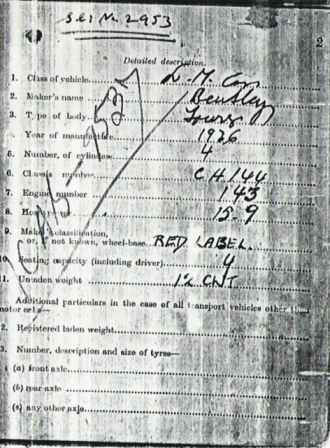 S.C.I № 2953
2
Detailed description.
1. Class of vehicle
2. Maker's name Bentley
3. Type of body Tourer
Year of manufacture 1926
5. Number of cylinders 4
6. Chassis number C.H. 144
7. Engine number 143
8. Horse 15.9
9. Maker's classification,
or, if not known, wheel-base RED LABEL.
10. Seating capacity (including driver) 4
11. Unladen weight 12 CWT
Additional particulars in the case of all transport vehicles other than
motor cabs—
2. Registered laden weight
3. Number, description and size of tyres—
(a) front axle
(b) rear axle
(c) any other axle